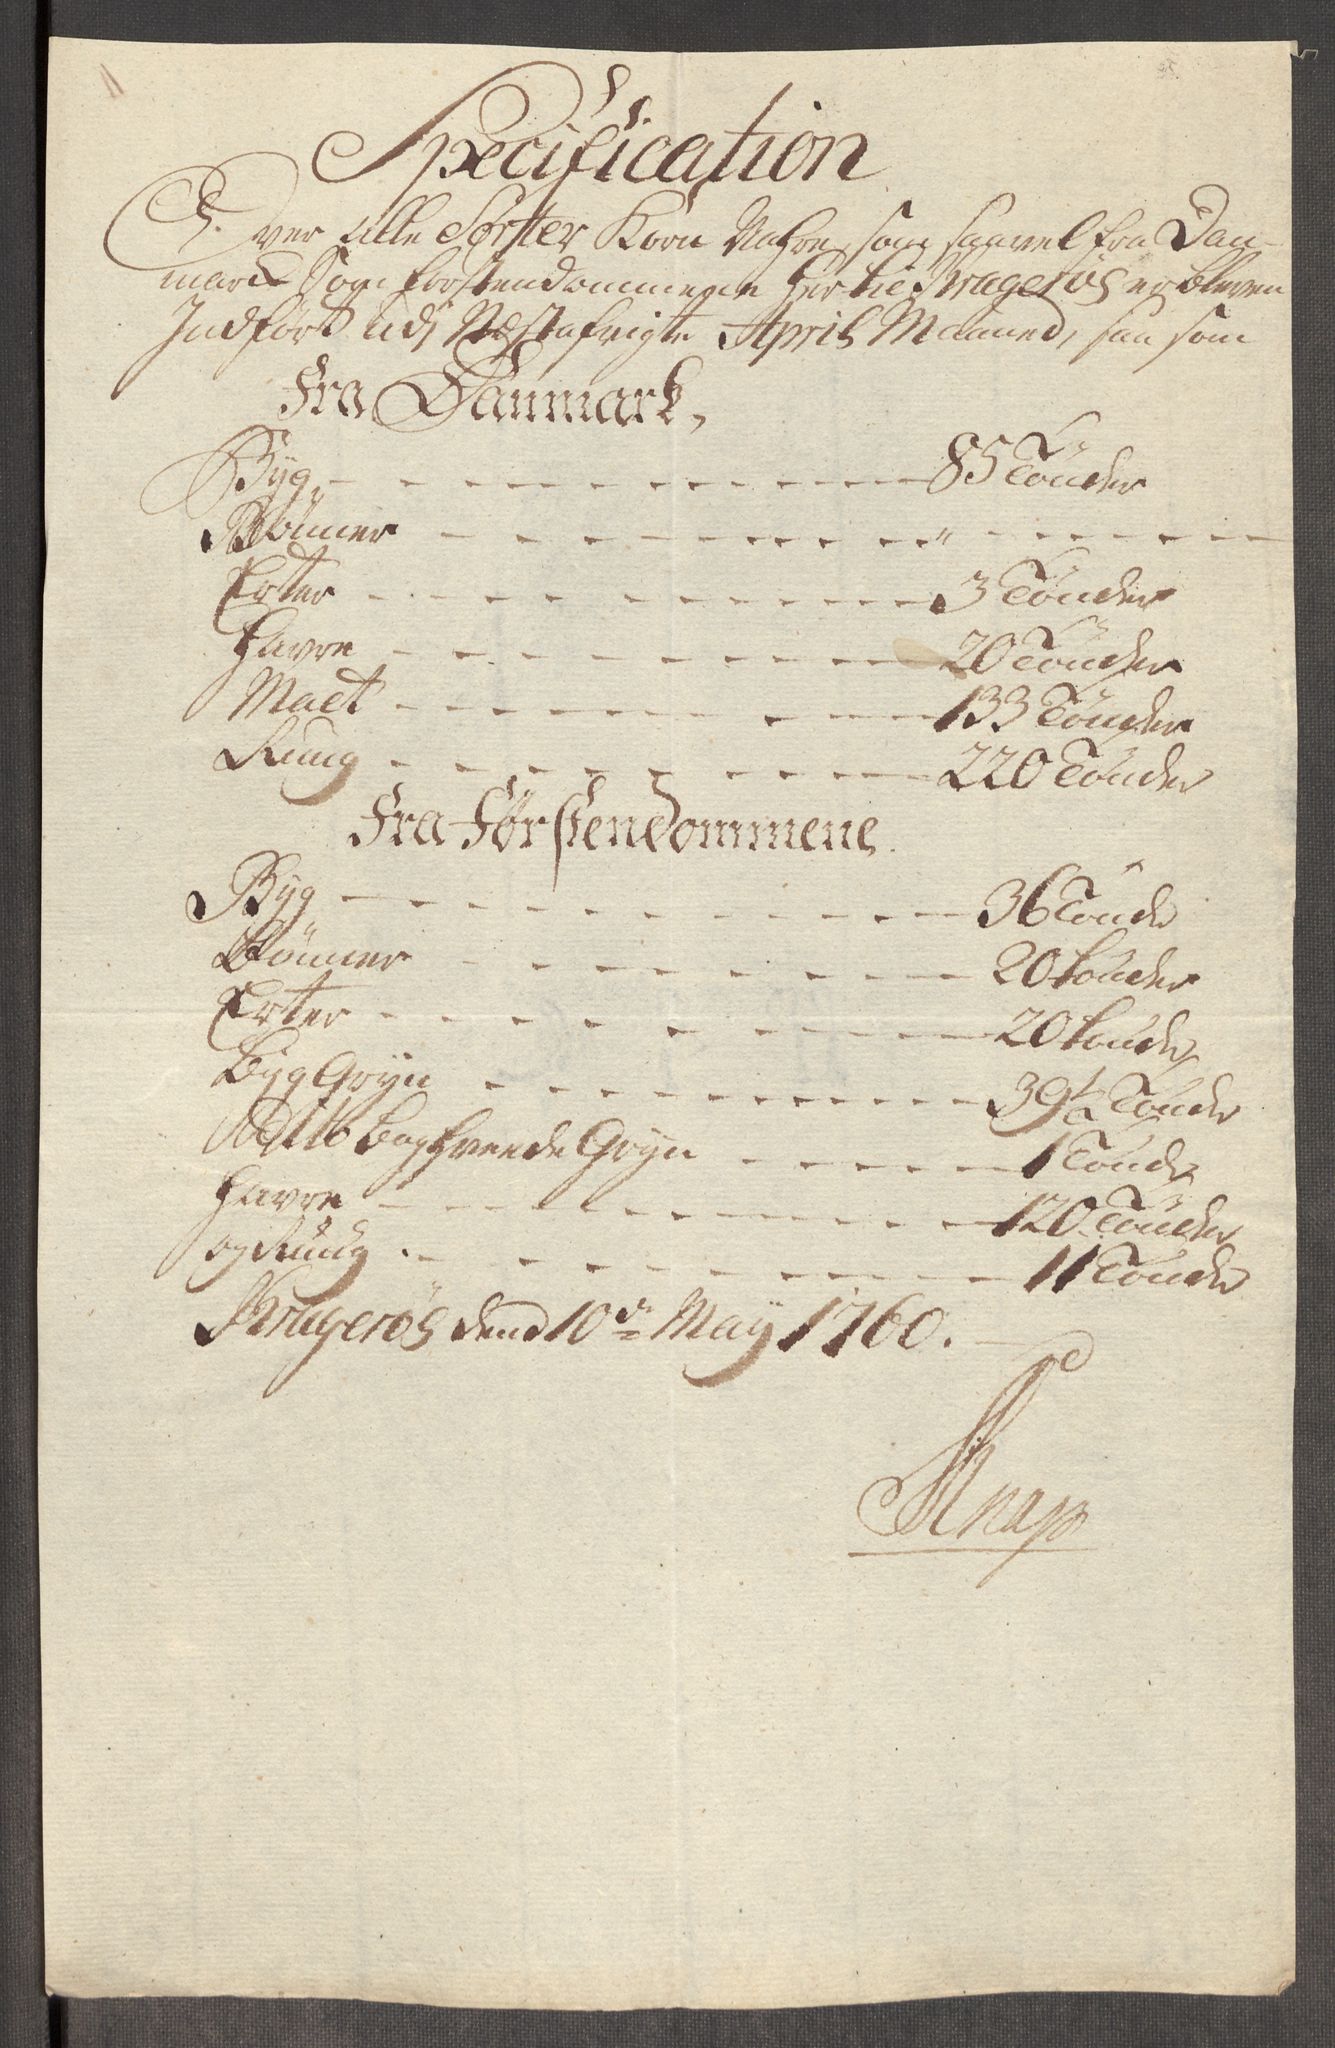 Specification
Over alle Sorter Korn Vahre, som saavel fra Dan-
marck Som Førstendommene her til Kragerøe er bleven
Indført udi Næstafvigte April Maaned, saa som
Fra Danmark,
Byg - - - 85 Tönder
Bönner - - - " - - -
Erter - - - 3 Tönder
Havre - - - 20 Tönder
Malt - - - 133 Tönder
Rüug - - - 220 Tönder
Fra Førstendommene
Byg - - - 36 Tönder
Bönner - - - 20 Tönder
Erter - - - 20 Tönder
Byg Gryn - - - 39½ Tönder
Ditto Boghveede Gryn - - - 1 Tönde
Havre - - - 120 Tönder
og Rüug - - - 11 Tönder
Kragerøe dend 10de May 1760.
Knap